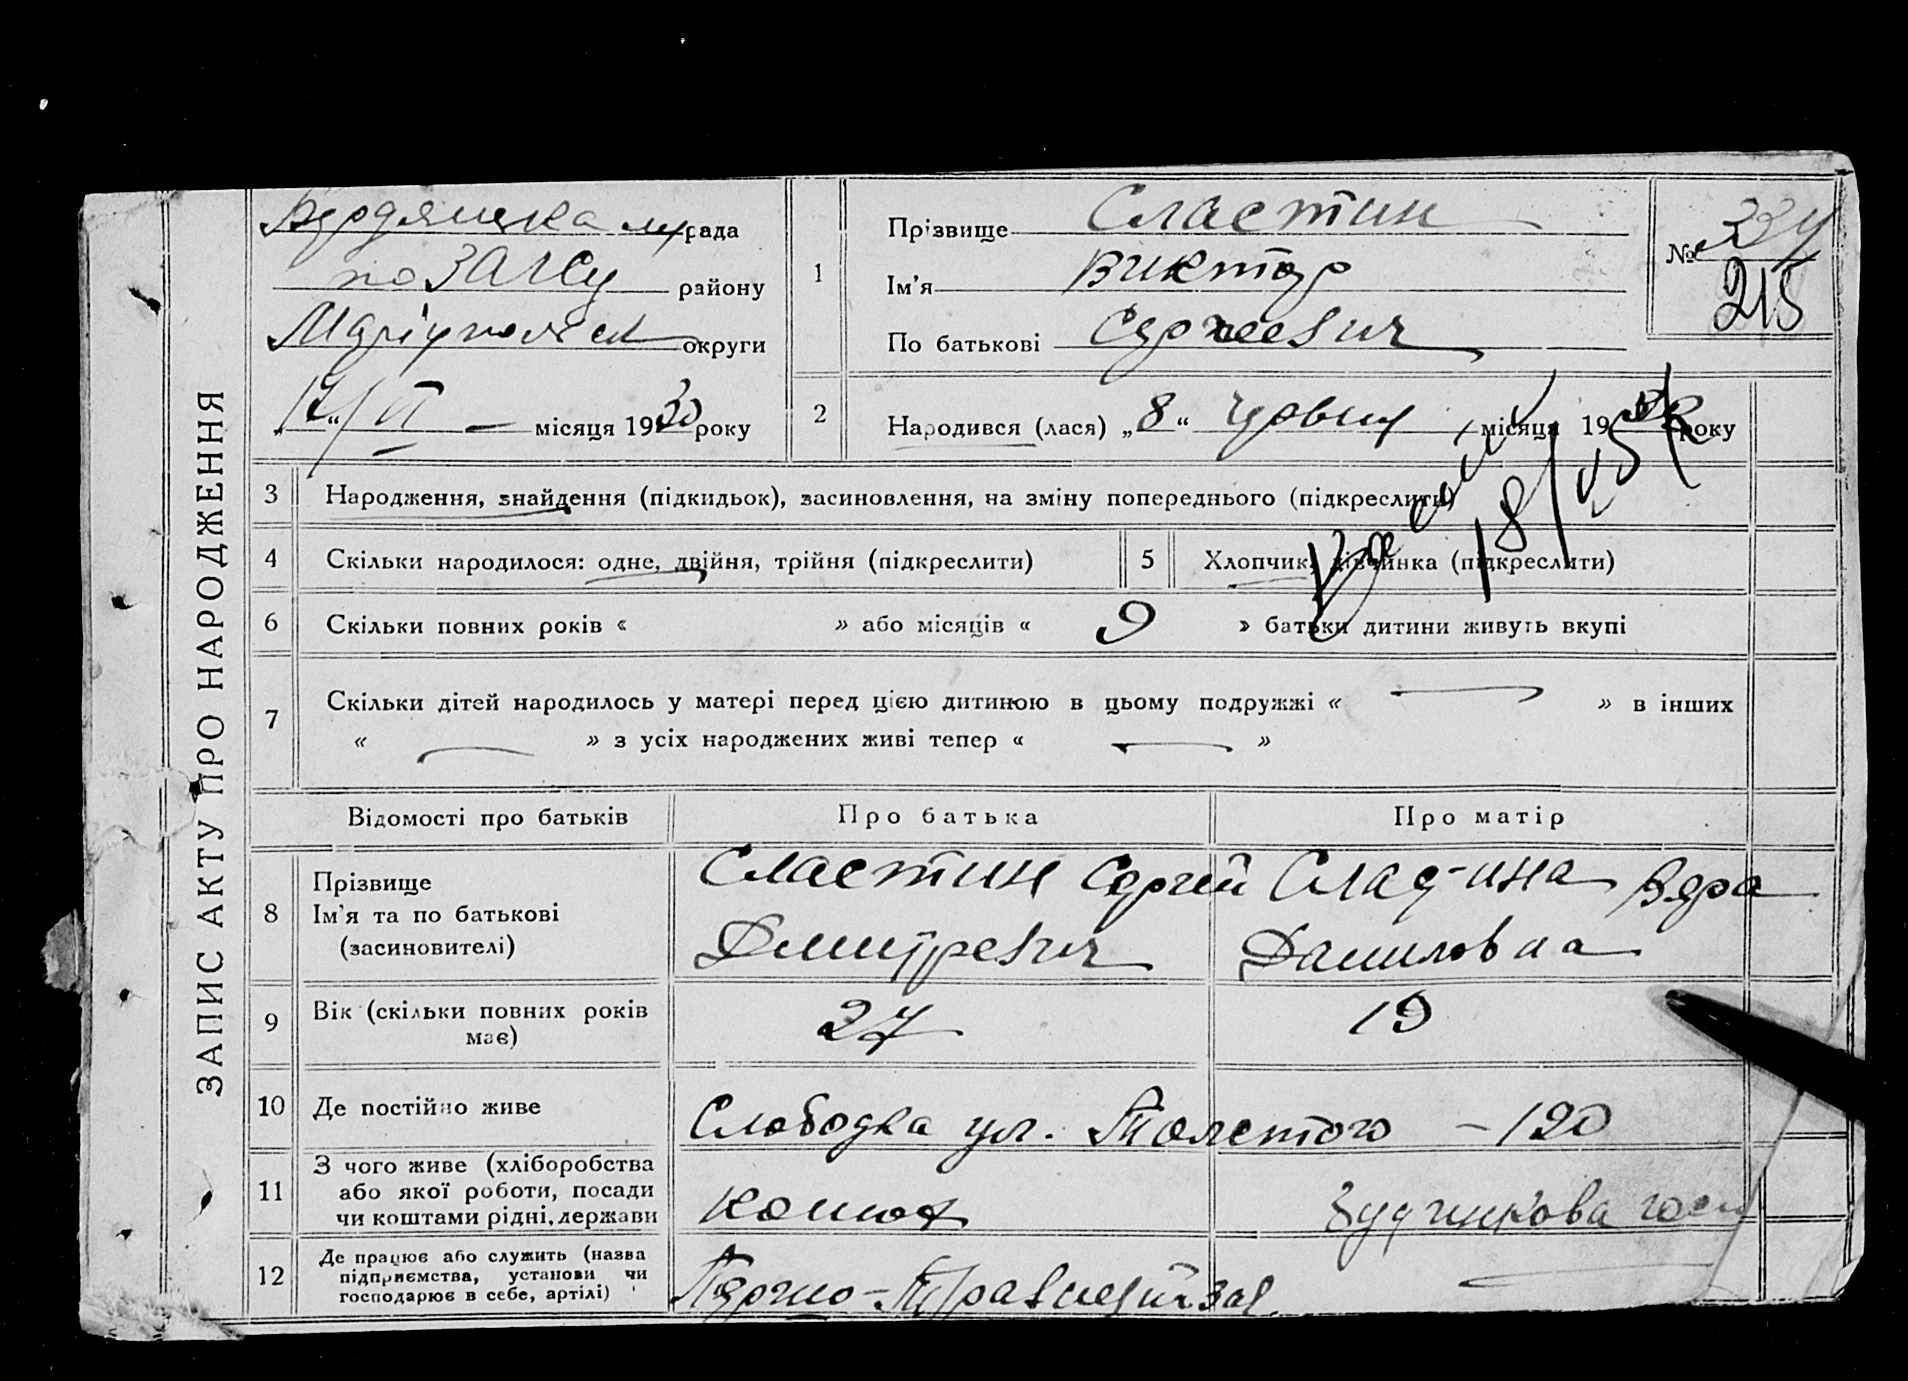 ЗАПИС АКТУ ПРО НАРОДЖЕННЯ
Бердянська рада
по ЗАГСу району
Маріупольськ округи
„ 14 “ VI — місяця 1930 року
1
Прізвище Сластин
Ім’я Виктор
По батькові Сергеевич
№ 334
215
2
Народився (лася) „ 8 “ червня місяця 1930 року
3 Народження, знайдення (підкидьок), засиновлення, на зміну попереднього (підкреслити)
4 Скільки народилося: одне, двійня, трійня (підкреслити) 5 Хлопчик, дівчинка (підкреслити)
18/
6 Скільки повних років « » або місяців « 9 » батьки дитини живуть вкупі
7 Скільки дітей народилось у матері перед цією дитиною в цьому подружжі « — » в інших
« — » з усіх народжених живі тепер « — »
Відомості про батьків Про батька Про матір
8 Прізвище
Ім’я та по батькові
(засиновителі)
Сластин Сергей
Дмитревич
Сластина Вера
Даниловна
9 Вік (скільки повних років
має)
27 19
10 Де постійно живе Слободка ул. Толстого – 120
11 З чого живе (хліборобства
або якої роботи, посади
чи коштами рідні, держави
12 Де працює або служить (назва
підприємства, установи чи
господарює в себе, артілі)
Первно-Травневий зав.